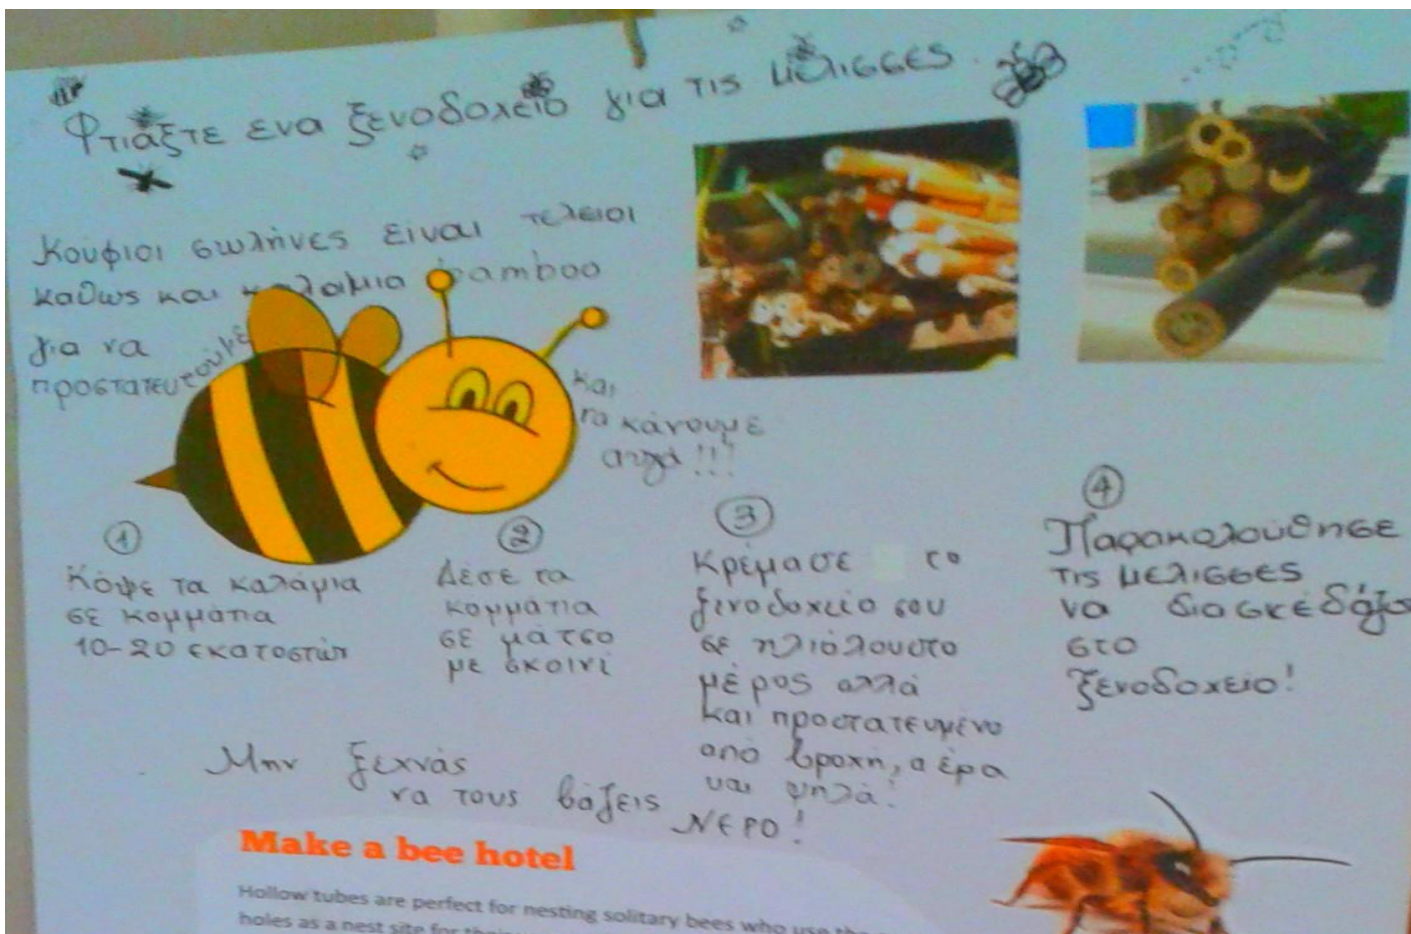 Φτιάξτε ενα ξενοδοχείο για τις μέλισσες
Κούφιοι σωλήνες είναι τελειοι
καθως και καλαμια bamboo
για να
προστατευτούμε
και
να κάνουμε
αυγά!!!
1
Κόψε τα καλάμια
σε κομμάτια
10-20 εκατοστών
2
Δέσε τα
κομμάτια
σε μάτσο
με σκοινί
3
Κρέμασε το
ξενοδοχείο σου
σε ηλιόλουστο
μέρος αλλά
και προστατευμένο
από βροχή, αέρα
και ψηλά!
4
Παρακολούθησε
τις μελισσες
να διασκεδάζου
στο
ξενοδοχείο!
Μην ξεχνάς
να τους βάζεις ΝΕΡΟ!
Make a bee hotel
Hollow tubes are perfect for nesting solitary bees who use the
holes as a nest site for their